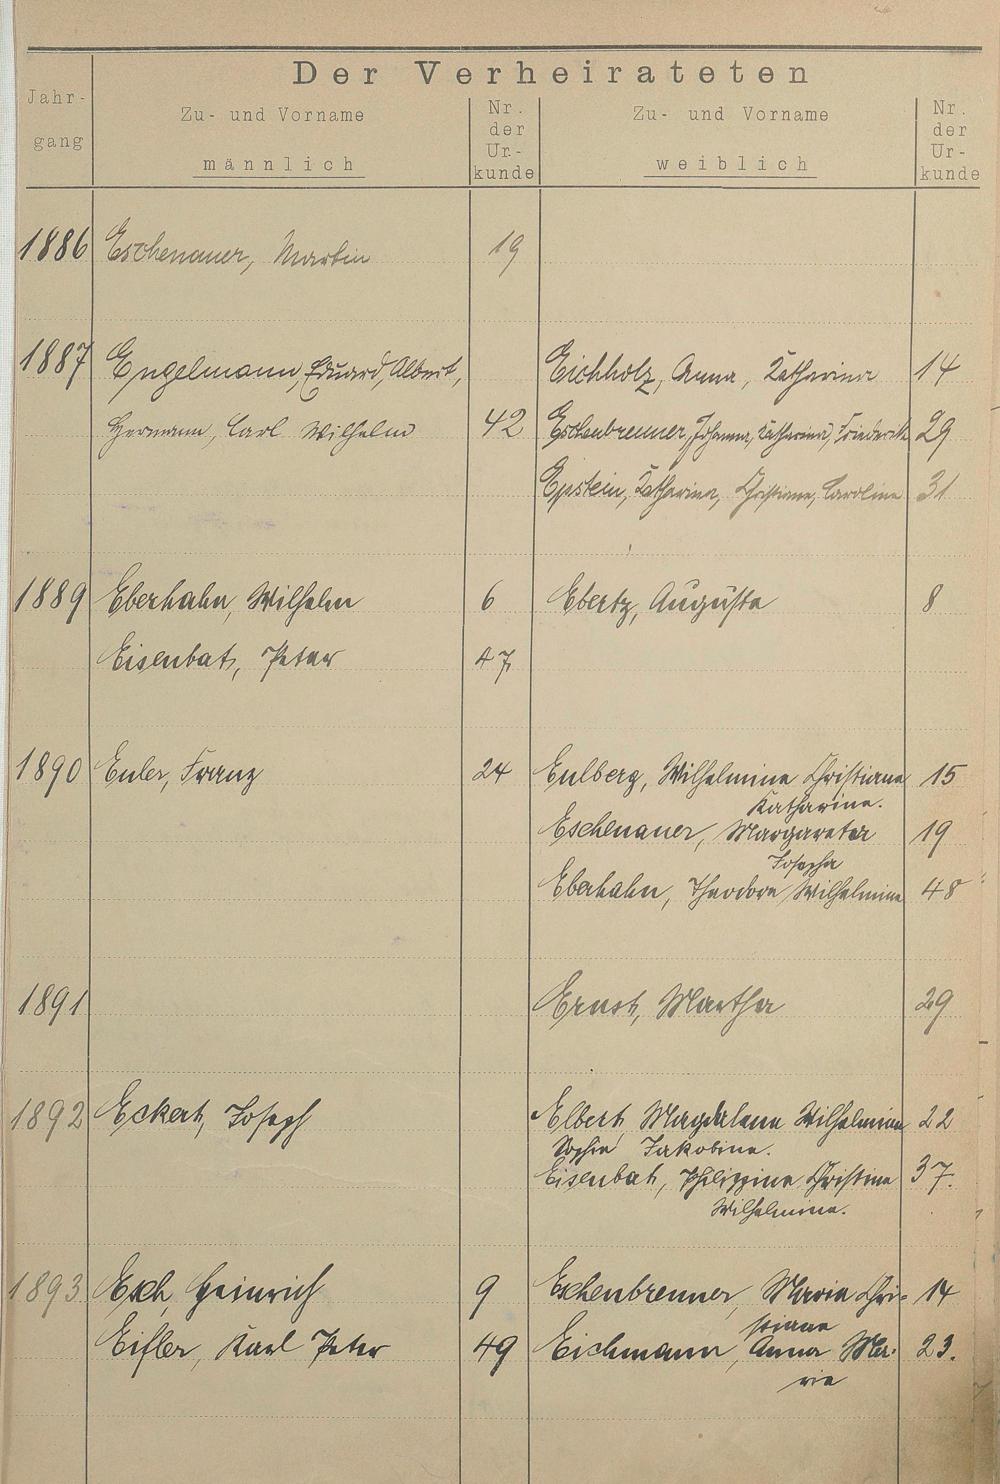 Der Verheirateten
Jahr-
gang
Zu- und Vorname
männlich
Nr.
der
Ur-
kunde
Zu- und Vorname
weiblich
Nr.
der
Ur-
kunde
1886 Eschenauer, Martin 19
1887 Engelmann, Eduard, Albert, Eichholz, Anna, Katharina 14
Hermann, Carl Wilhelm 42 Eschenbrenner, Johanna, Katharina, Friederike 29
Epstein, Katharina, Christiane, Caroline 31
1889 Eberhahn, Wilhelm 6 Ebertz, Auguste 8
Eisenbat, Peter 47
1890 Euler, Franz 24 Eulberg, Wilhelmine Christiane 15
Katharine.
Eschenauer, Margareta 19
Josepha
Eberhahn, Theodore Wilhelmine 48
1891 Ernst, Martha 29
1892 Eckert, Joseph Elbert Magdalene Wilhelmine 22
Sophie Jakobine.
Eisenbat, Philippine Christine 37.
Wilhelmine.
1893 Esch, Heinrich 9 Eschenbrenner, Maria Chri- 14
stiane
Eifler, Karl Peter 49 Eichmann, Anna Ma- 23.
rie